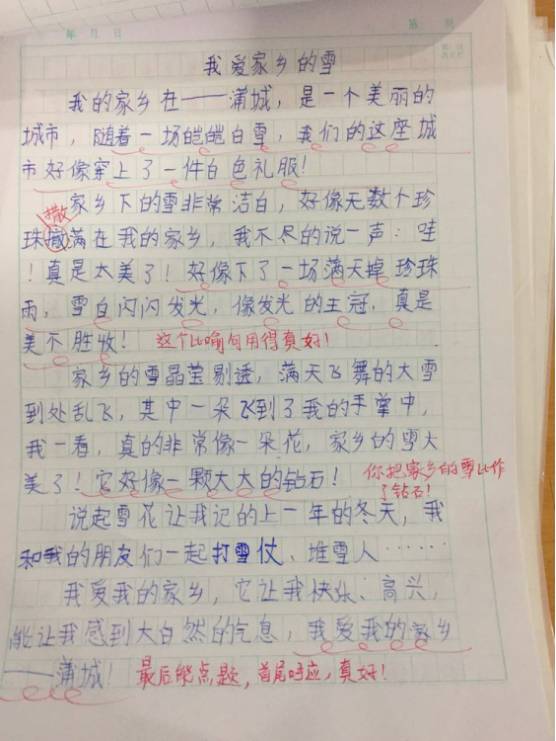 年 月 日
我爱家乡的雪
我的家乡在——浦城，是一个美丽的
城市，随着一场皑皑白雪，我们的这座城
市好像穿上了一件白色礼服！
家乡下的雪非常洁白，好像无数个珍
撒
珠满在我的家乡，我不尽的说一声：哇
！真是太美了！好像下了一场满天掉珍珠
雨，雪白闪闪发光，像发光的王冠，真是
美不胜收！ 这个比喻句用得真好！
家乡的雪晶莹剔透，满天飞舞的大雪
到处乱飞，其中一朵飞到了我的手掌中，
我一看，真的非常像一朵花，家乡的雪太
美了！它好像一颗大大的钻石！ 你把家乡的雪比作
了钻石！
说起雪花让我记的上一年的冬天，我
和我的朋友们一起打雪仗、堆雪人……
我爱我的家乡，它让我快乐、高兴，
能让我感到大自然的气息，我爱我的家乡
——浦城！ 最后能点题，首尾呼应，真好！